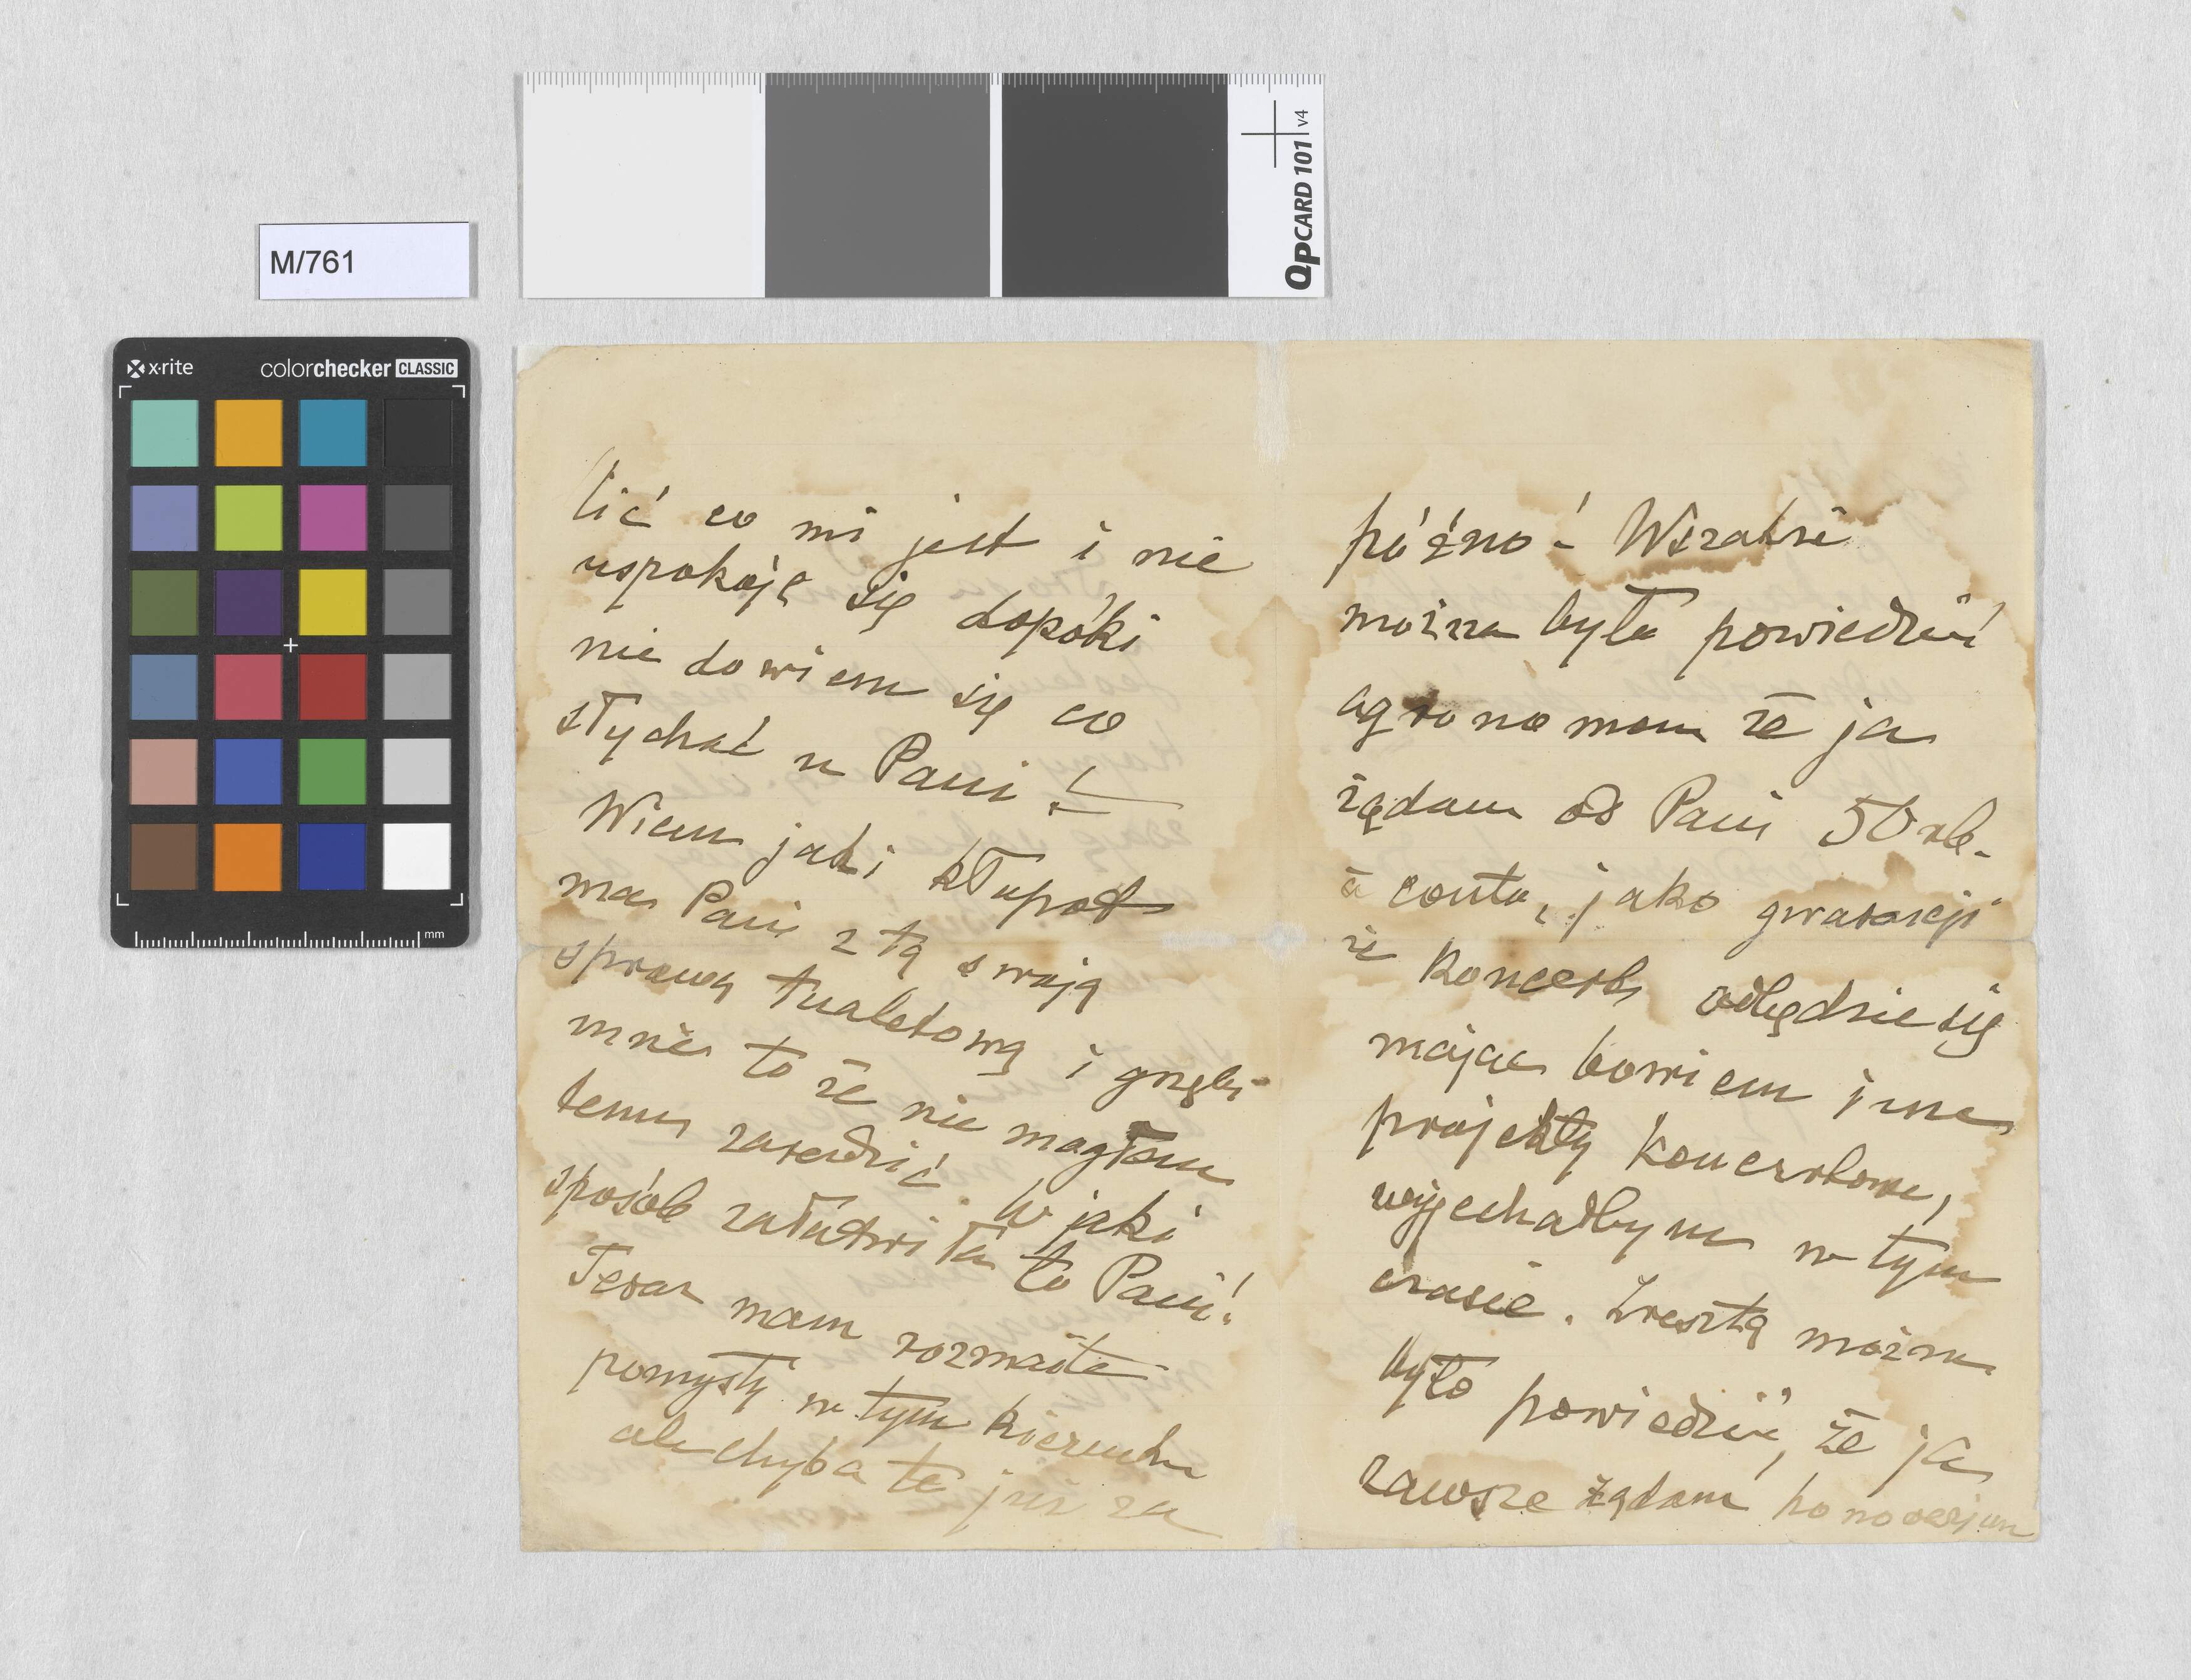 M/761
QPCARD 101 v4
x·rite colorchecker CLASSIC
mm
lić co mi jest i nie
uspokoję się dopóki
nie dowiem się co
słychać u Pani!
Wiem jaki kłupot
ma Pani z tą swoją
sprawą tualetową i gnębi
mnie to że nie mogłem
temu zaradzić. W jaki
sposób załatwiła to Pani!
Teraz mam rozmaite
pomysły w tym kierunku
ale chyba to już za
późno! Wszakże
można było powiedzieć
agronomom że ja
żądam od Pani 50 rb.
à conto, jako gwarancji
że koncert odbędzie się
mając bowiem inne
projekty koncertowe,
wyjechałbym w tym
czasie. Zresztą można
było powiedzieć, że ja
zawsze żądam honorarjum